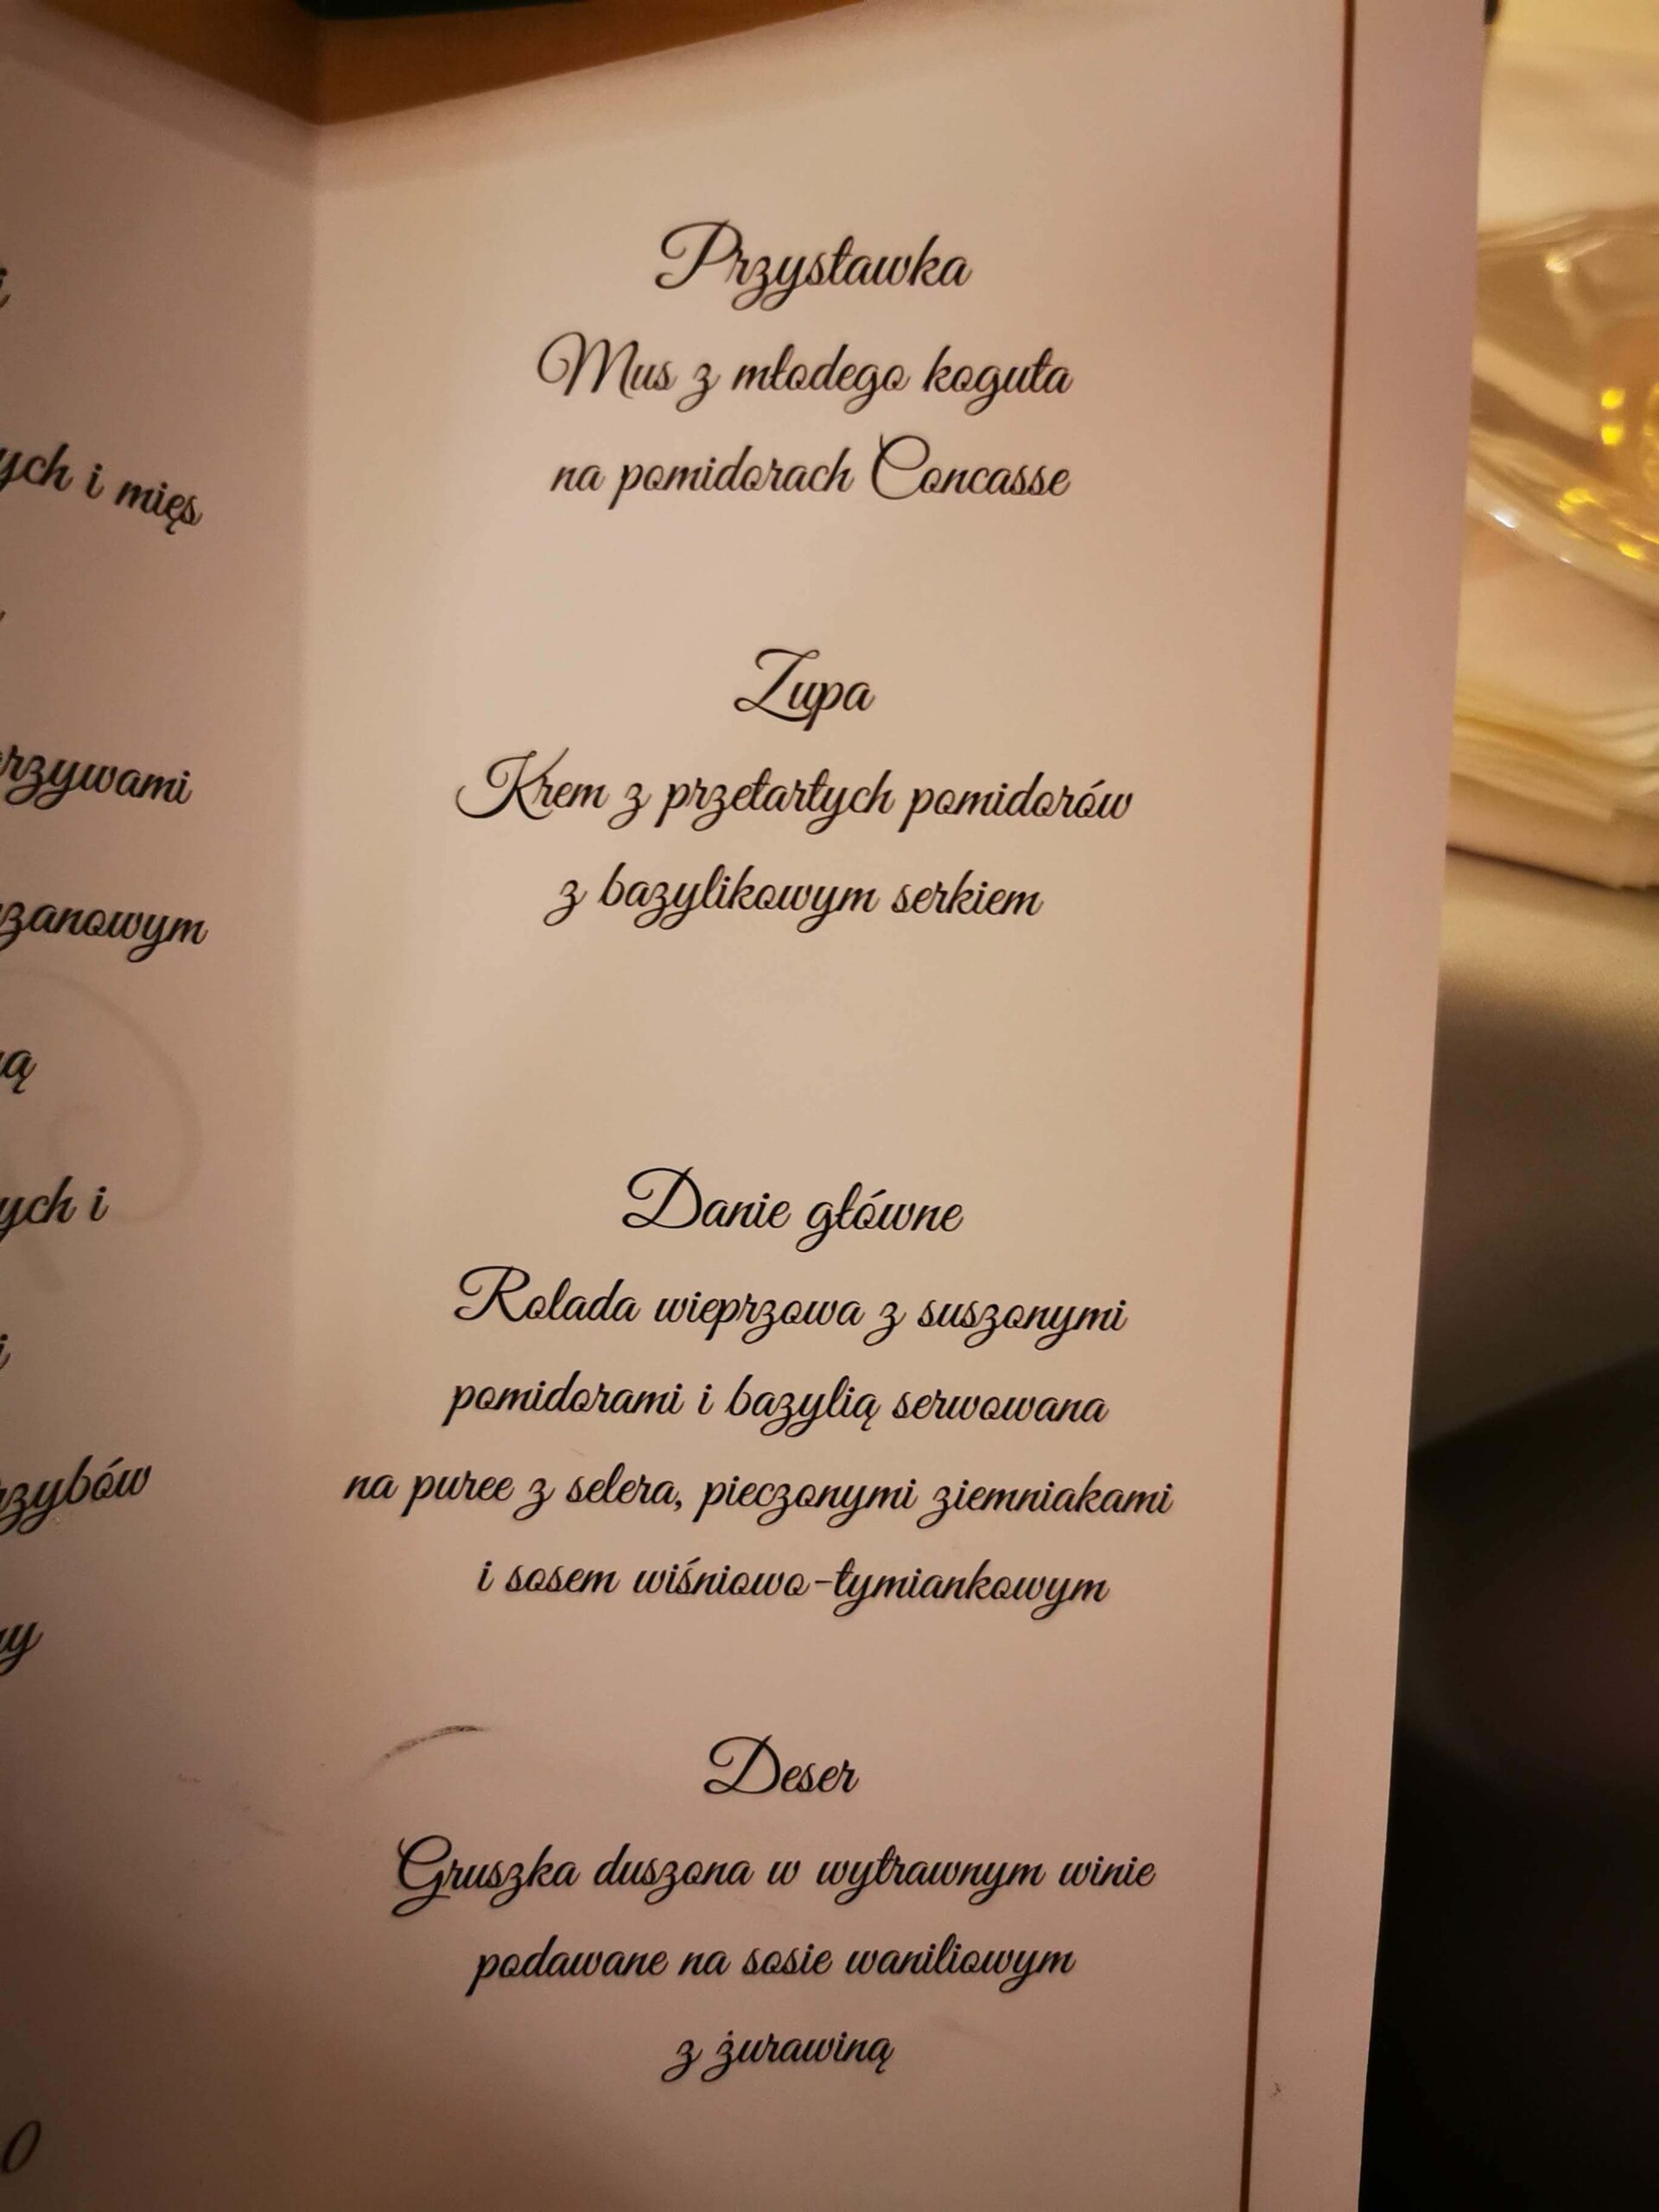 ych i mięs
Przystawka
Mus z młodego koguta
na pomidorach Concasse
Zupa
Krem z przetartych pomidorów
z bazylikowym serkiem
Danie główne
Rolada wieprzowa z suszonymi
pomidorami i bazylią serwowana
na puree z selera, pieczonymi ziemniakami
i sosem wiśniowo-tymiankowym
Deser
Gruszka duszona w wytrawnym winie
podawane na sosie waniliowym
z żurawiną